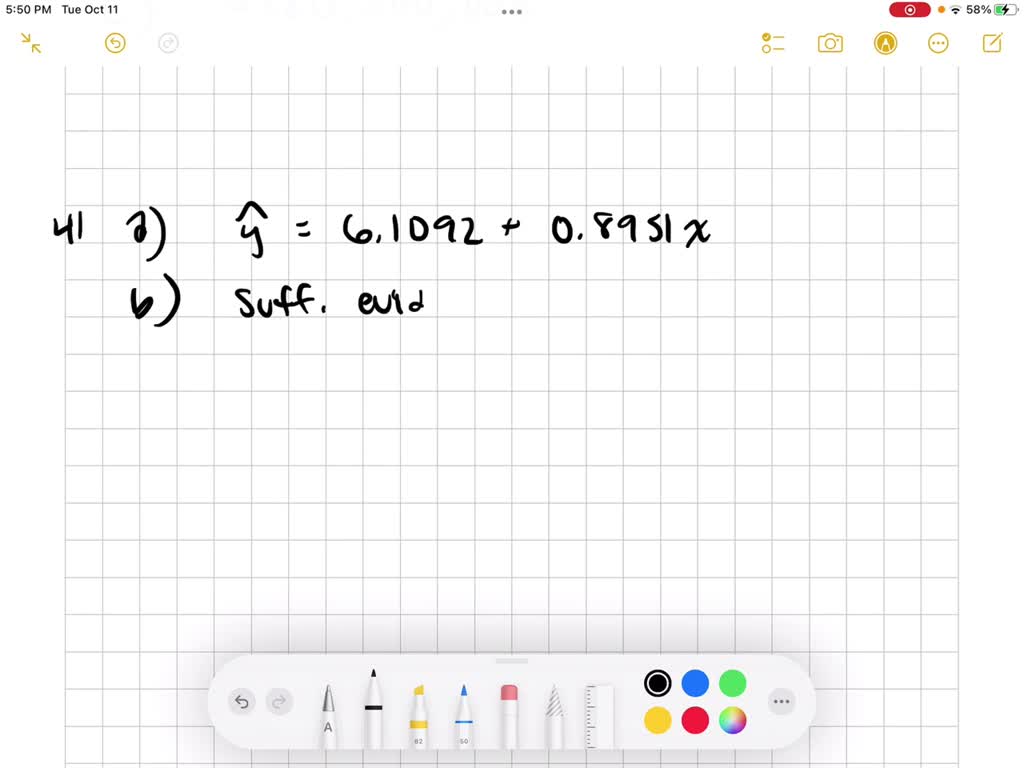 5:50 PM Tue Oct 11
58%
41 a) ŷ = 6.1092 + 0.8951x
b) Suff. evid
A
82
50